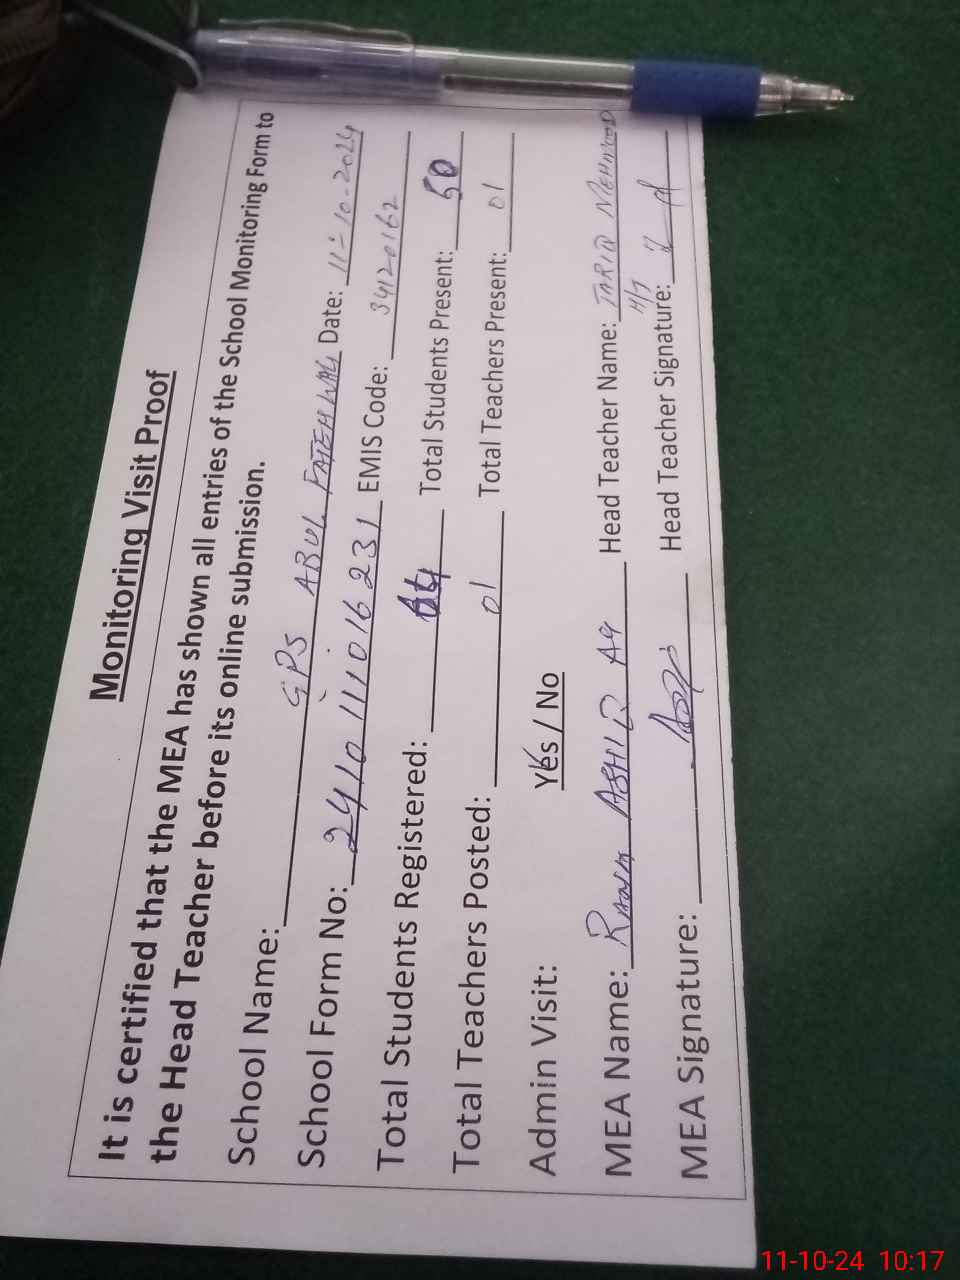 Monitoring Visit Proof
It is certified that the MEA has shown all entries of the School Monitoring Form to
the Head Teacher before its online submission.
School Name: GPS ABUL FATEH WAH Date: 11-10-2024
School Form No: 2410111016231 EMIS Code: 34120162
Total Students Registered: 64 Total Students Present: 50
Total Teachers Posted: 01 Total Teachers Present: 01
Admin Visit: Yes / No
MEA Name: Head Teacher Name: TARIQ MEHMOOD
H/T
MEA Signature: Head Teacher Signature:
11-10-24 10:17